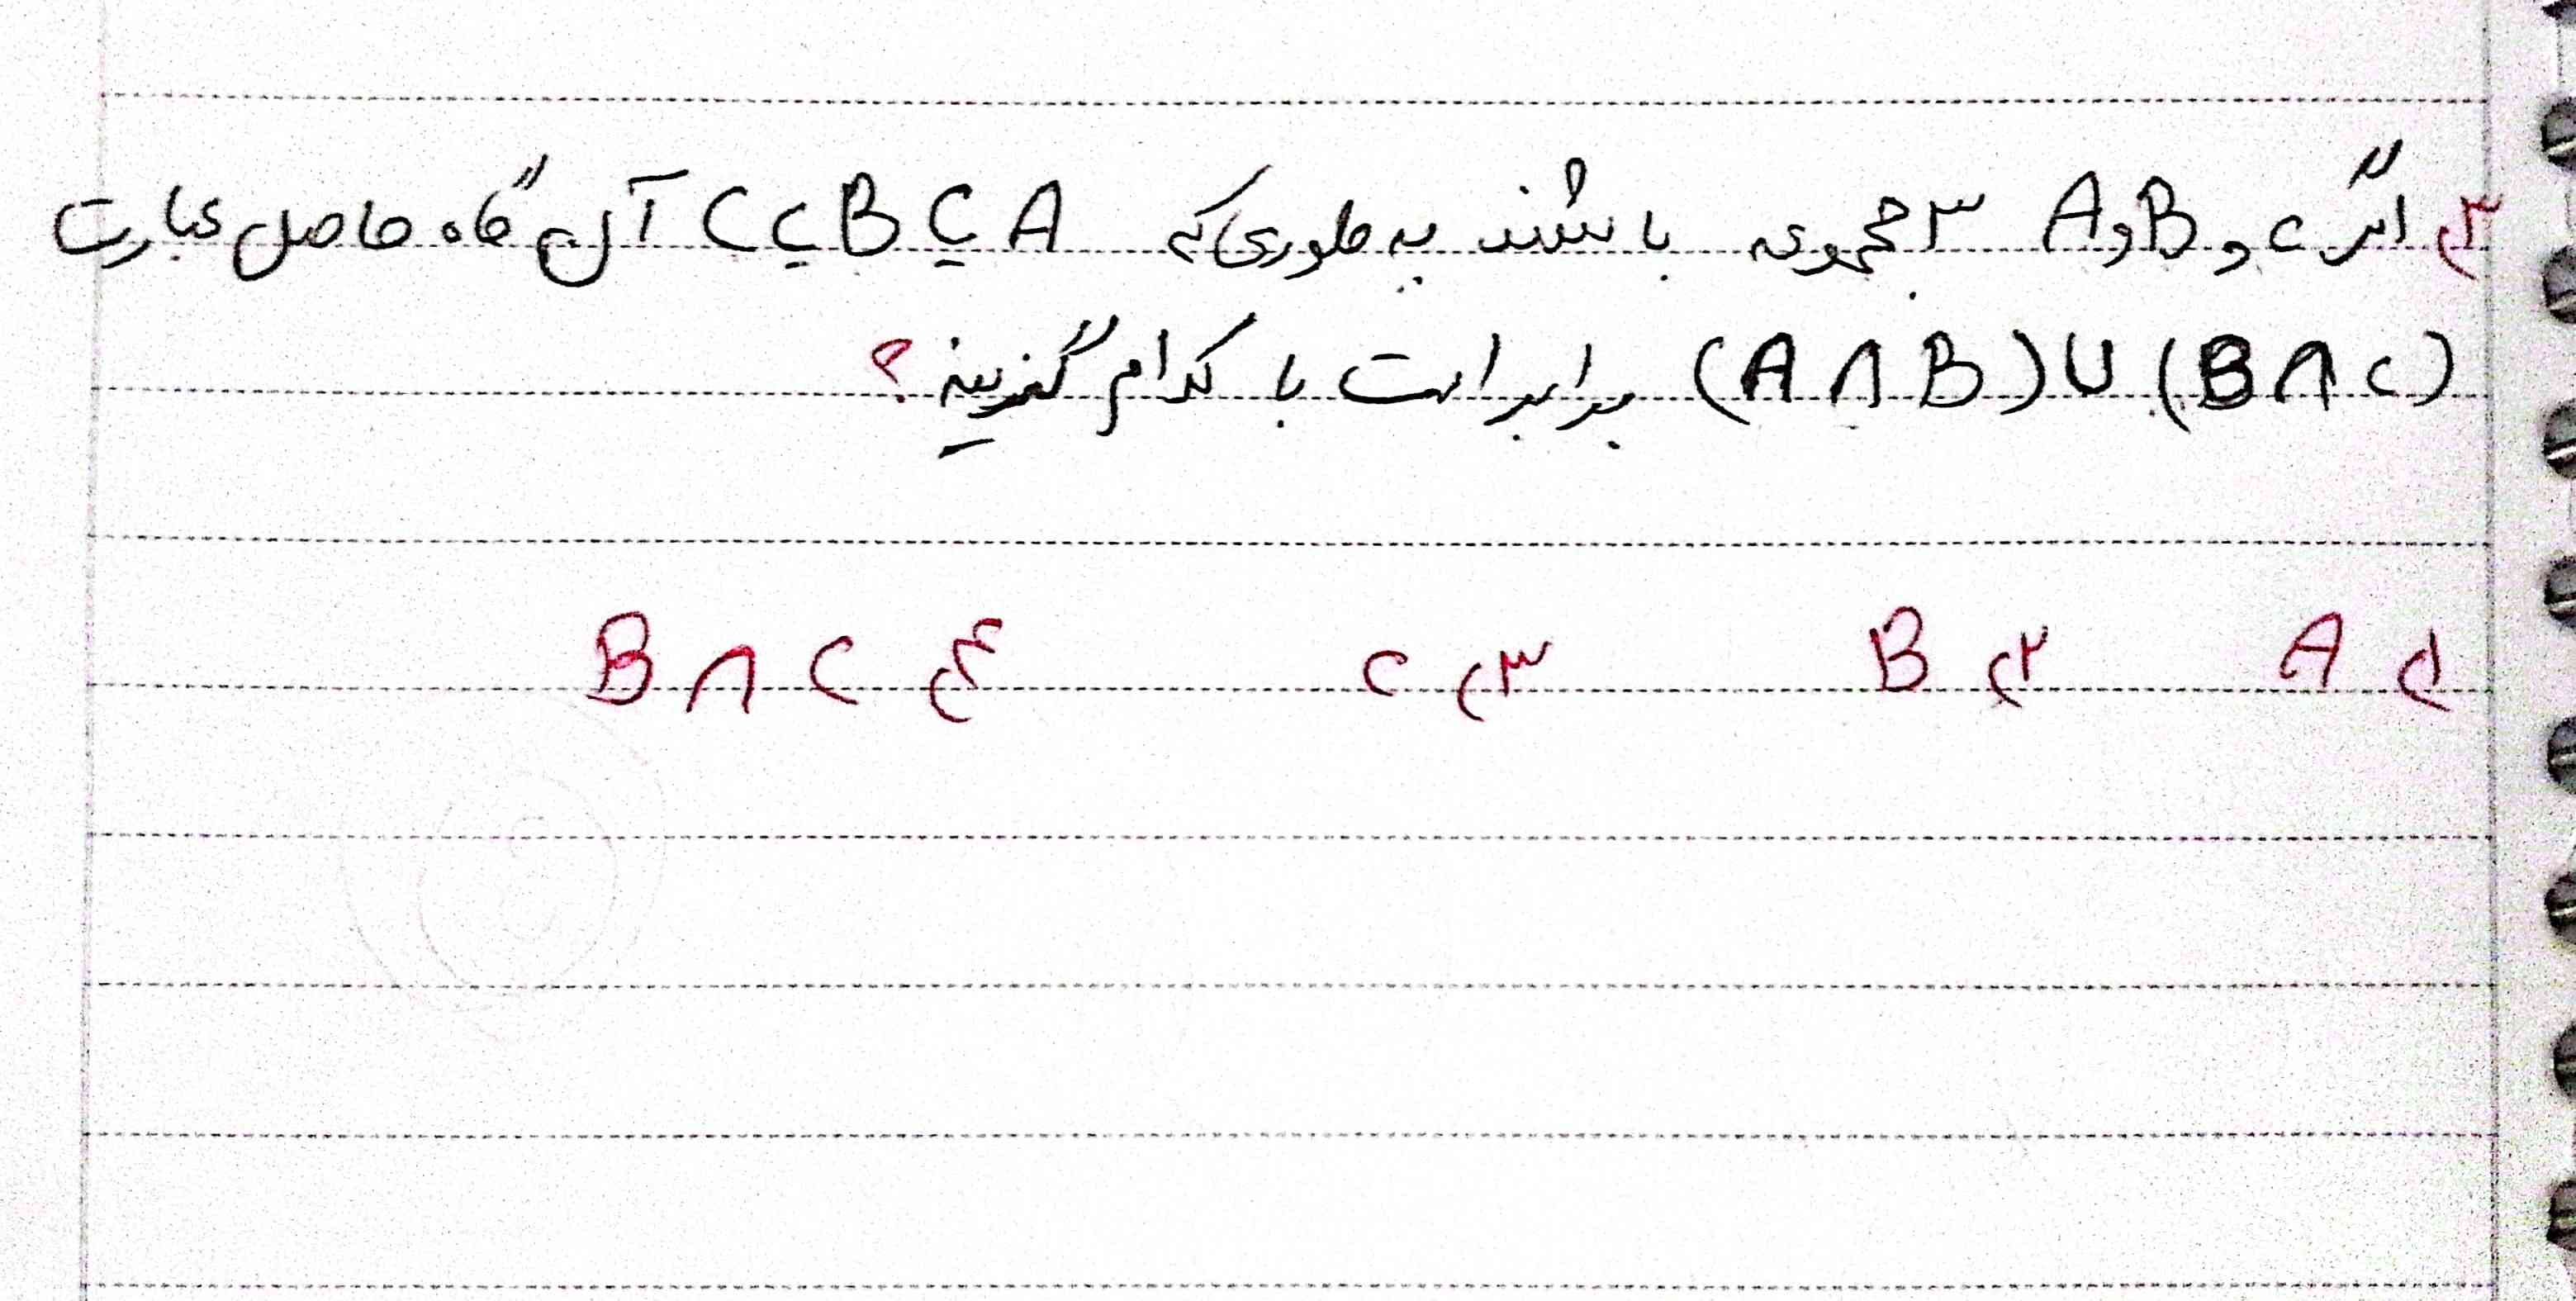 ۳) اگر A و B و C ۳ مجموعه باشند به طوری که C ⊆ B ⊆ A آن گاه حاصل عبارت
(A ∩ B) ∪ (B ∩ C) برابر است با کدام گزینه؟
۱) A ۲) B ۳) C ۴) B ∩ C